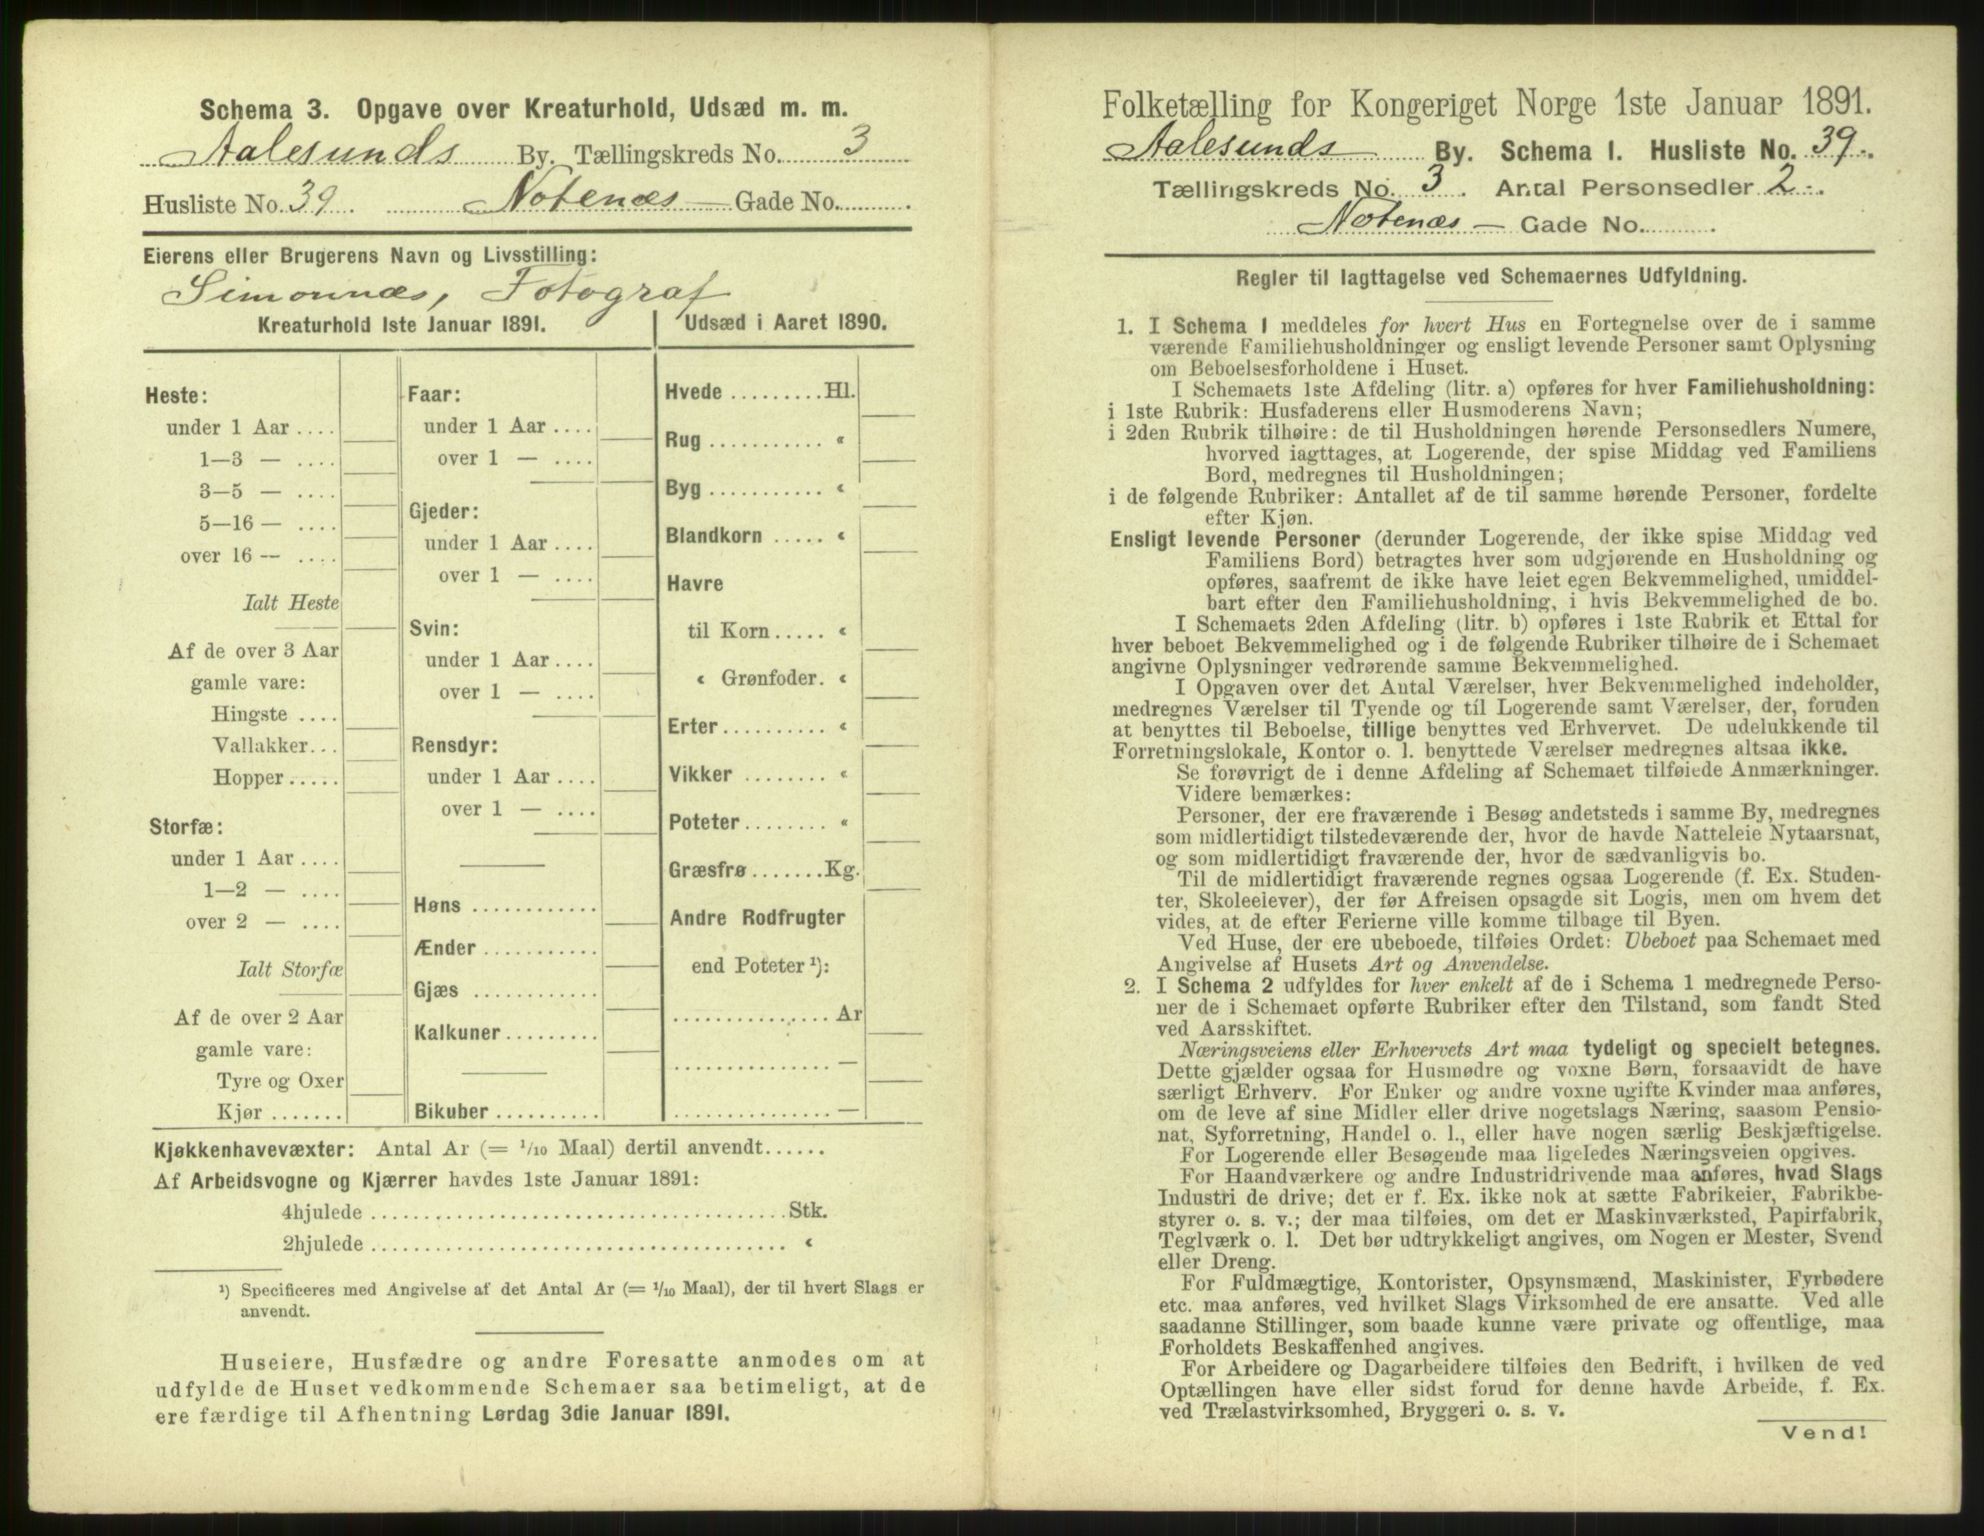 Schema 3. Opgave over Kreaturhold, Udsæd m. m.
Aalesunds By. Tællingskreds No. 3
Husliste No. 39. Notenæs – Gade No.
Eierens eller Brugerens Navn og Livsstilling:
Simonnæs, Fotograf
Kreaturhold 1ste Januar 1891.
Heste:
under 1 Aar ....
1—3 — ....
3—5 — ....
5—16 — ....
over 16 — ....
Ialt Heste
Af de over 3 Aar
gamle vare:
Hingste ....
Vallakker...
Hopper.....
Storfæ:
under 1 Aar ....
1—2 — ....
over 2 — ....
Ialt Storfæ
Af de over 2 Aar
gamle vare:
Tyre og Oxer
Kjør .......
Faar:
under 1 Aar ....
over 1 — ....
Gjeder:
under 1 Aar ....
over 1 — ....
Svin:
under 1 Aar ....
over 1 — ....
Rensdyr:
under 1 Aar ....
over 1 — ....
Høns ............
Ænder ...........
Gjæs ............
Kalkuner.........
Bikuber ..........
Udsæd i Aaret 1890.
Hvede .........Hl.
Rug ........... «
Byg ........... «
Blandkorn ..... «
Havre
til Korn..... «
« Grønfoder. «
Erter.......... «
Vikker ........ «
Poteter........ «
Græsfrø .......Kg.
Andre Rodfrugter
end Poteter ¹):
............... Ar
............... —
............... —
Kjøkkenhavevæxter: Antal Ar (= 1/10 Maal) dertil anvendt......
Af Arbeidsvogne og Kjærrer havdes 1ste Januar 1891:
4hjulede ....................................... Stk.
2hjulede ....................................... «
¹) Specificeres med Angivelse af det Antal Ar (= 1/10 Maal), der til hvert Slags er
anvendt.
Huseiere, Husfædre og andre Foresatte anmodes om at
udfylde de Huset vedkommende Schemaer saa betimeligt, at de
ere færdige til Afhentning Lørdag 3die Januar 1891.
Folketælling for Kongeriget Norge 1ste Januar 1891.
Aalesunds By. Schema 1. Husliste No. 39.
Tællingskreds No. 3. Antal Personsedler 2.
Notenæs – Gade No.
Regler til Iagttagelse ved Schemaernes Udfyldning.
1. I Schema 1 meddeles for hvert Hus en Fortegnelse over de i samme
værende Familiehusholdninger og ensligt levende Personer samt Oplysning
om Beboelsesforholdene i Huset.
I Schemaets 1ste Afdeling (litr. a) opføres for hver Familiehusholdning:
i 1ste Rubrik: Husfaderens eller Husmoderens Navn;
i 2den Rubrik tilhøire: de til Husholdningen hørende Personsedlers Numere,
hvorved iagttages, at Logerende, der spise Middag ved Familiens
Bord, medregnes til Husholdningen;
i de følgende Rubriker: Antallet af de til samme hørende Personer, fordelte
efter Kjøn.
Ensligt levende Personer (derunder Logerende, der ikke spise Middag ved
Familiens Bord) betragtes hver som udgjørende en Husholdning og
opføres, saafremt de ikke have leiet egen Bekvemmelighed, umiddel-
bart efter den Familiehusholdning, i hvis Bekvemmelighed de bo.
I Schemaets 2den Afdeling (litr. b) opføres i 1ste Rubrik et Ettal for
hver beboet Bekvemmelighed og i de følgende Rubriker tilhøire de i Schemaet
angivne Oplysninger vedrørende samme Bekvemmelighed.
I Opgaven over det Antal Værelser, hver Bekvemmelighed indeholder,
medregnes Værelser til Tyende og til Logerende samt Værelser, der, foruden
at benyttes til Beboelse, tillige benyttes ved Erhvervet. De udelukkende til
Forretningslokale, Kontor o. l. benyttede Værelser medregnes altsaa ikke.
Se forøvrigt de i denne Afdeling af Schemaet tilføiede Anmærkninger.
Videre bemærkes:
Personer, der ere fraværende i Besøg andetsteds i samme By, medregnes
som midlertidigt tilstedeværende der, hvor de havde Natteleie Nytaarsnat,
og som midlertidigt fraværende der, hvor de sædvanligvis bo.
Til de midlertidigt fraværende regnes ogsaa Logerende (f. Ex. Studen-
ter, Skoleelever), der før Afreisen opsagde sit Logis, men om hvem det
vides, at de efter Ferierne ville komme tilbage til Byen.
Ved Huse, der ere ubeboede, tilføies Ordet: Ubeboet paa Schemaet med
Angivelse af Husets Art og Anvendelse.
2. I Schema 2 udfyldes for hver enkelt af de i Schema 1 medregnede Perso-
ner de i Schemaet opførte Rubriker efter den Tilstand, som fandt Sted
ved Aarsskiftet.
Næringsveiens eller Erhvervets Art maa tydeligt og specielt betegnes.
Dette gjælder ogsaa for Husmødre og voxne Børn, forsaavidt de have
særligt Erhverv. For Enker og andre voxne ugifte Kvinder maa anføres,
om de leve af sine Midler eller drive nogetslags Næring, saasom Pensio-
nat, Syforretning, Handel o. l., eller have nogen særlig Beskjæftigelse.
For Logerende eller Besøgende maa ligeledes Næringsveien opgives.
For Haandværkere og andre Industridrivende maa anføres, hvad Slags
Industri de drive; det er f. Ex. ikke nok at sætte Fabrikeier, Fabrikbe-
styrer o. s. v.; der maa tilføies, om det er Maskinværksted, Papirfabrik,
Teglværk o. l. Det bør udtrykkeligt angives, om Nogen er Mester, Svend
eller Dreng.
For Fuldmægtige, Kontorister, Opsynsmænd, Maskinister, Fyrbødere
etc. maa anføres, ved hvilket Slags Virksomhed de ere ansatte. Ved alle
saadanne Stillinger, som baade kunne være private og offentlige, maa
Forholdets Beskaffenhed angives.
For Arbeidere og Dagarbeidere tilføies den Bedrift, i hvilken de ved
Optællingen have eller sidst forud for denne havde Arbeide, f. Ex.
ved Trælastvirksomhed, Bryggeri o. s. v.
Vend!